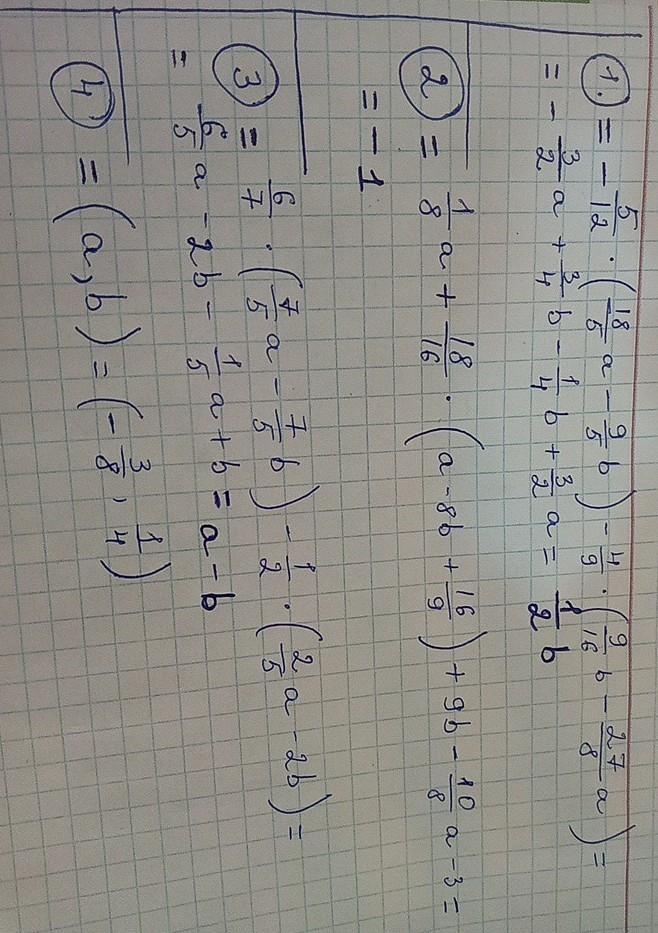 1. = - 5/12 · (18/5 a - 9/5 b) - 4/9 · (9/16 b - 27/8 a) =
= - 3/2 a + 3/4 b - 1/4 b + 3/2 a = 1/2 b
2 = 1/8 a + 18/16 · (a - 8b + 16/9) + 9b - 10/8 a - 3 =
= - 1
3 = 6/7 · (7/5 a - 7/5 b) - 1/2 · (2/5 a - 2b) =
= 6/5 a - 2b - 1/5 a + b = a - b
4 = (a, b) = (- 3/8, 1/4)